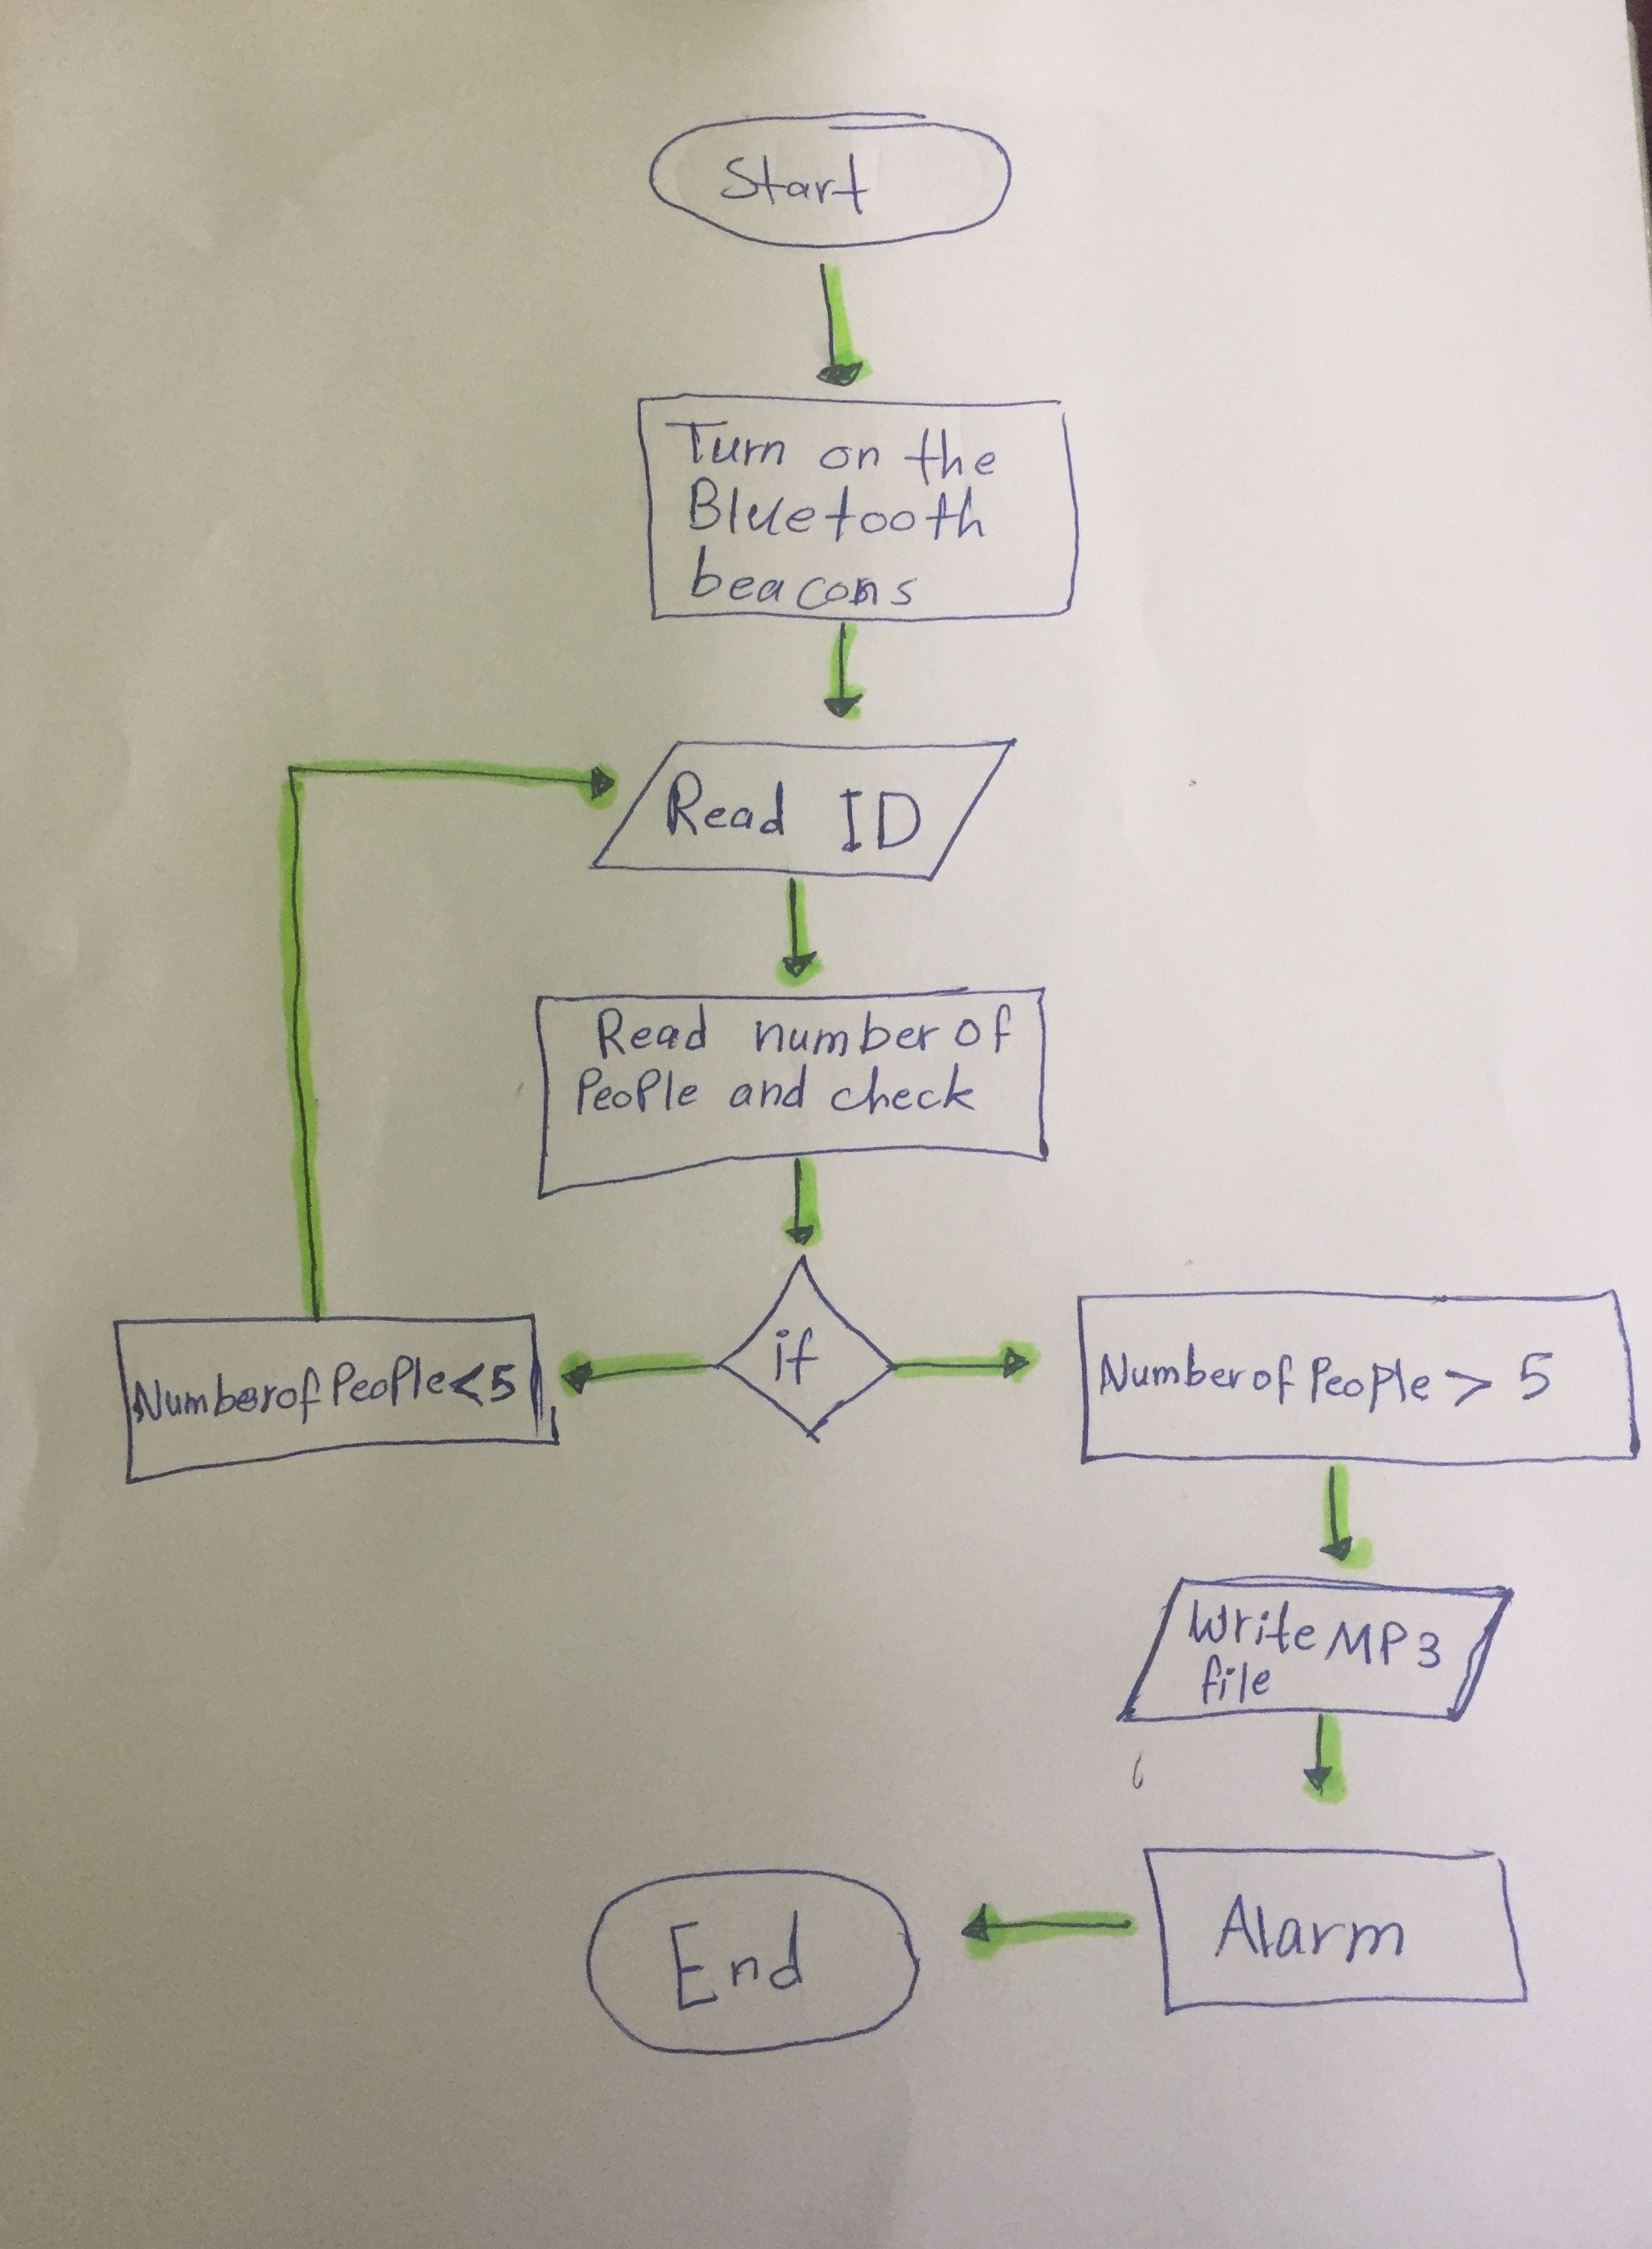 Start
Turn on the
Bluetooth
beacons
Read ID
Read number of
People and check
if
Number of People < 5
Number of People > 5
Write MP3
file
Alarm
End